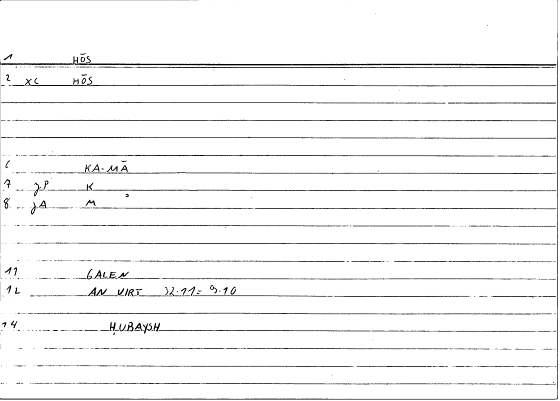 1 HŌS
2 XC HŌS
6 KA-MĀ
7 JP K
8 JA M
11 GALEN
12 AN VIRT 32.11= 9.10
14 ḤUBAYSH